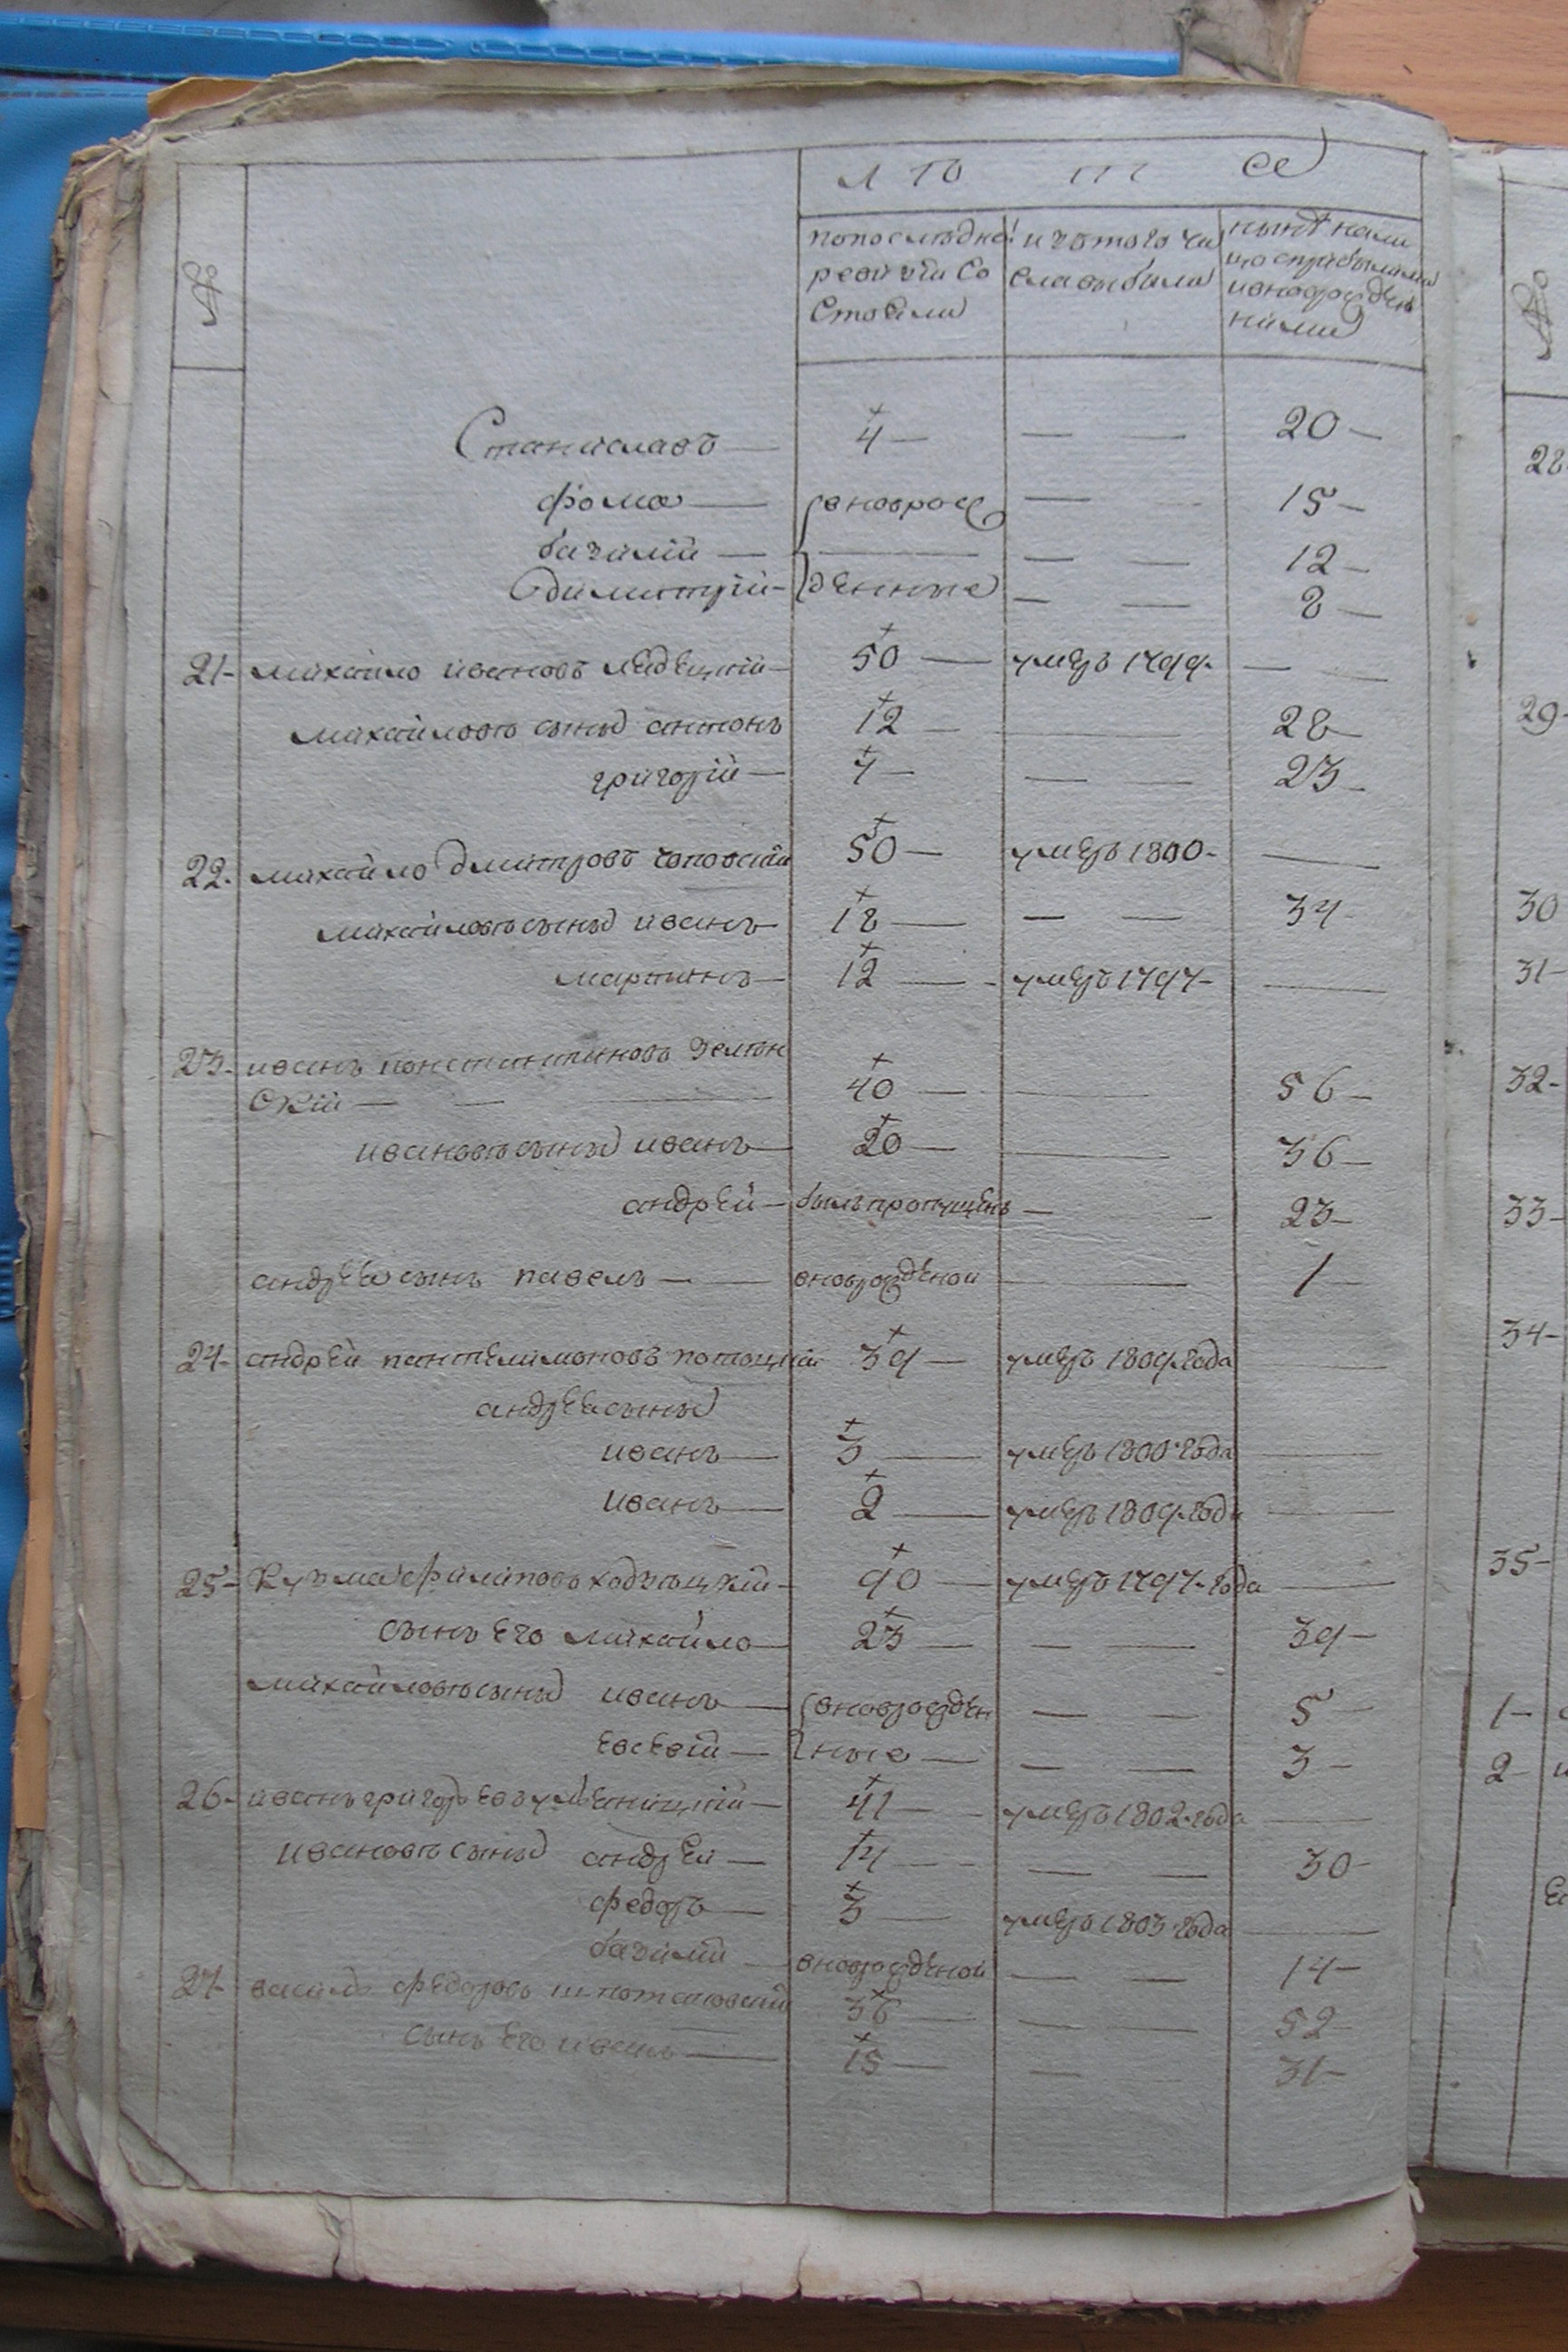 № Л Ѣ Т Ѣ
попослѣдней ревизіи состояли
изтого числа выбыли
нынѣ налицо сприбылыми ивноврожденными
Станиславъ — 4 — — — 20 —
фома — вноврож — — 15 —
базилій — — — — 12 —
димитрій — денные — — 8 —
21 — михайло ивановъ — 50 — умеръ 1799 — —
михайловы сыны антонъ 12 — — 28 —
григорій — 7 — — — 23 —
22 — михайло дмитровъ 50 — умеръ 1800 — —
михайловы сыны иванъ — 18 — — — 34 —
мартинъ — 12 — умеръ 1797 — —
23 — иванъ константиновъ
скій — — — 40 — — 56 —
ивановы сыны иванъ — 20 — — 36 —
андрей — былъ пропущенъ — — 23 —
андрея сынъ павелъ — — вноврожденой — 1 —
24 — андрей пантелимоновъ потоцкій 39 — умеръ 1809 года —
андрея сыны
иванъ — 3 — умеръ 1800 года —
иванъ — 2 — умеръ 1809 года —
25 — Кузма филиповъ 90 — умеръ 1797 года —
сынъ его михайло — 23 — — — 39 —
михайловы сыны иванъ — вноврожден — — 5 —
евсевій — ные — — — 3 —
26 — иванъ григорьевъ 41 — умеръ 1802 года —
ивановы сыны андрей — 14 — — — 30 —
федоръ — 3 — умеръ 1803 года —
базилій — вноврожденой — — 14 —
27 — василь федоровъ 36 — — — 52 —
сынъ его иванъ — 15 — — — 31 —
№
28
29 —
30
31 —
32 —
33 —
34 —
35 —
1 —
2 —